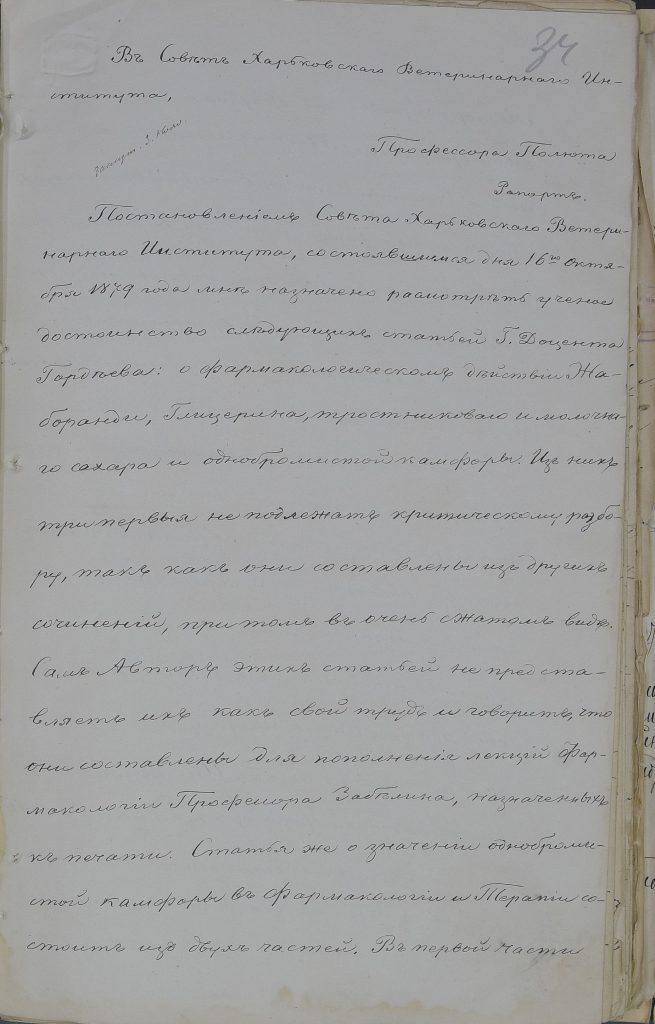 34
Въ Совѣтъ Харьковскаго Ветеринарнаго Ин-
ститута,
Профессора Полюта
Рапортъ.
Постановленіемъ Совѣта Харьковскаго Ветери-
нарнаго Института, состоявшимся дня 16го Октя-
бря 1879 года мнѣ назначено расмотрѣть ученое
достоинство слѣдующихъ статьей Г. Доцента
Гордѣева: о фармакологическомъ дѣйствіи Жа-
боранди, Глицерина, тростниковаго и молочна-
го сахара и однобромистой камфоры. Изъ нихъ
три первыя не подлежатъ критическому разбо-
ру, такъ какъ они составлены изъ другихъ
сочиненій, притомъ въ очень сжатомъ видѣ.
Самъ Авторъ этихъ статьей не предста-
вляетъ ихъ какъ свой трудъ и говоритъ, что
они составлены для пополненія лекцій Фар-
макологіи Професора Забѣлина, назначенныхъ
къ печати. Статья же о значеніи одноброми-
стой камфоры въ Фармакологіи и Терапіи со-
стоитъ изъ двухъ частей. Въ первой части